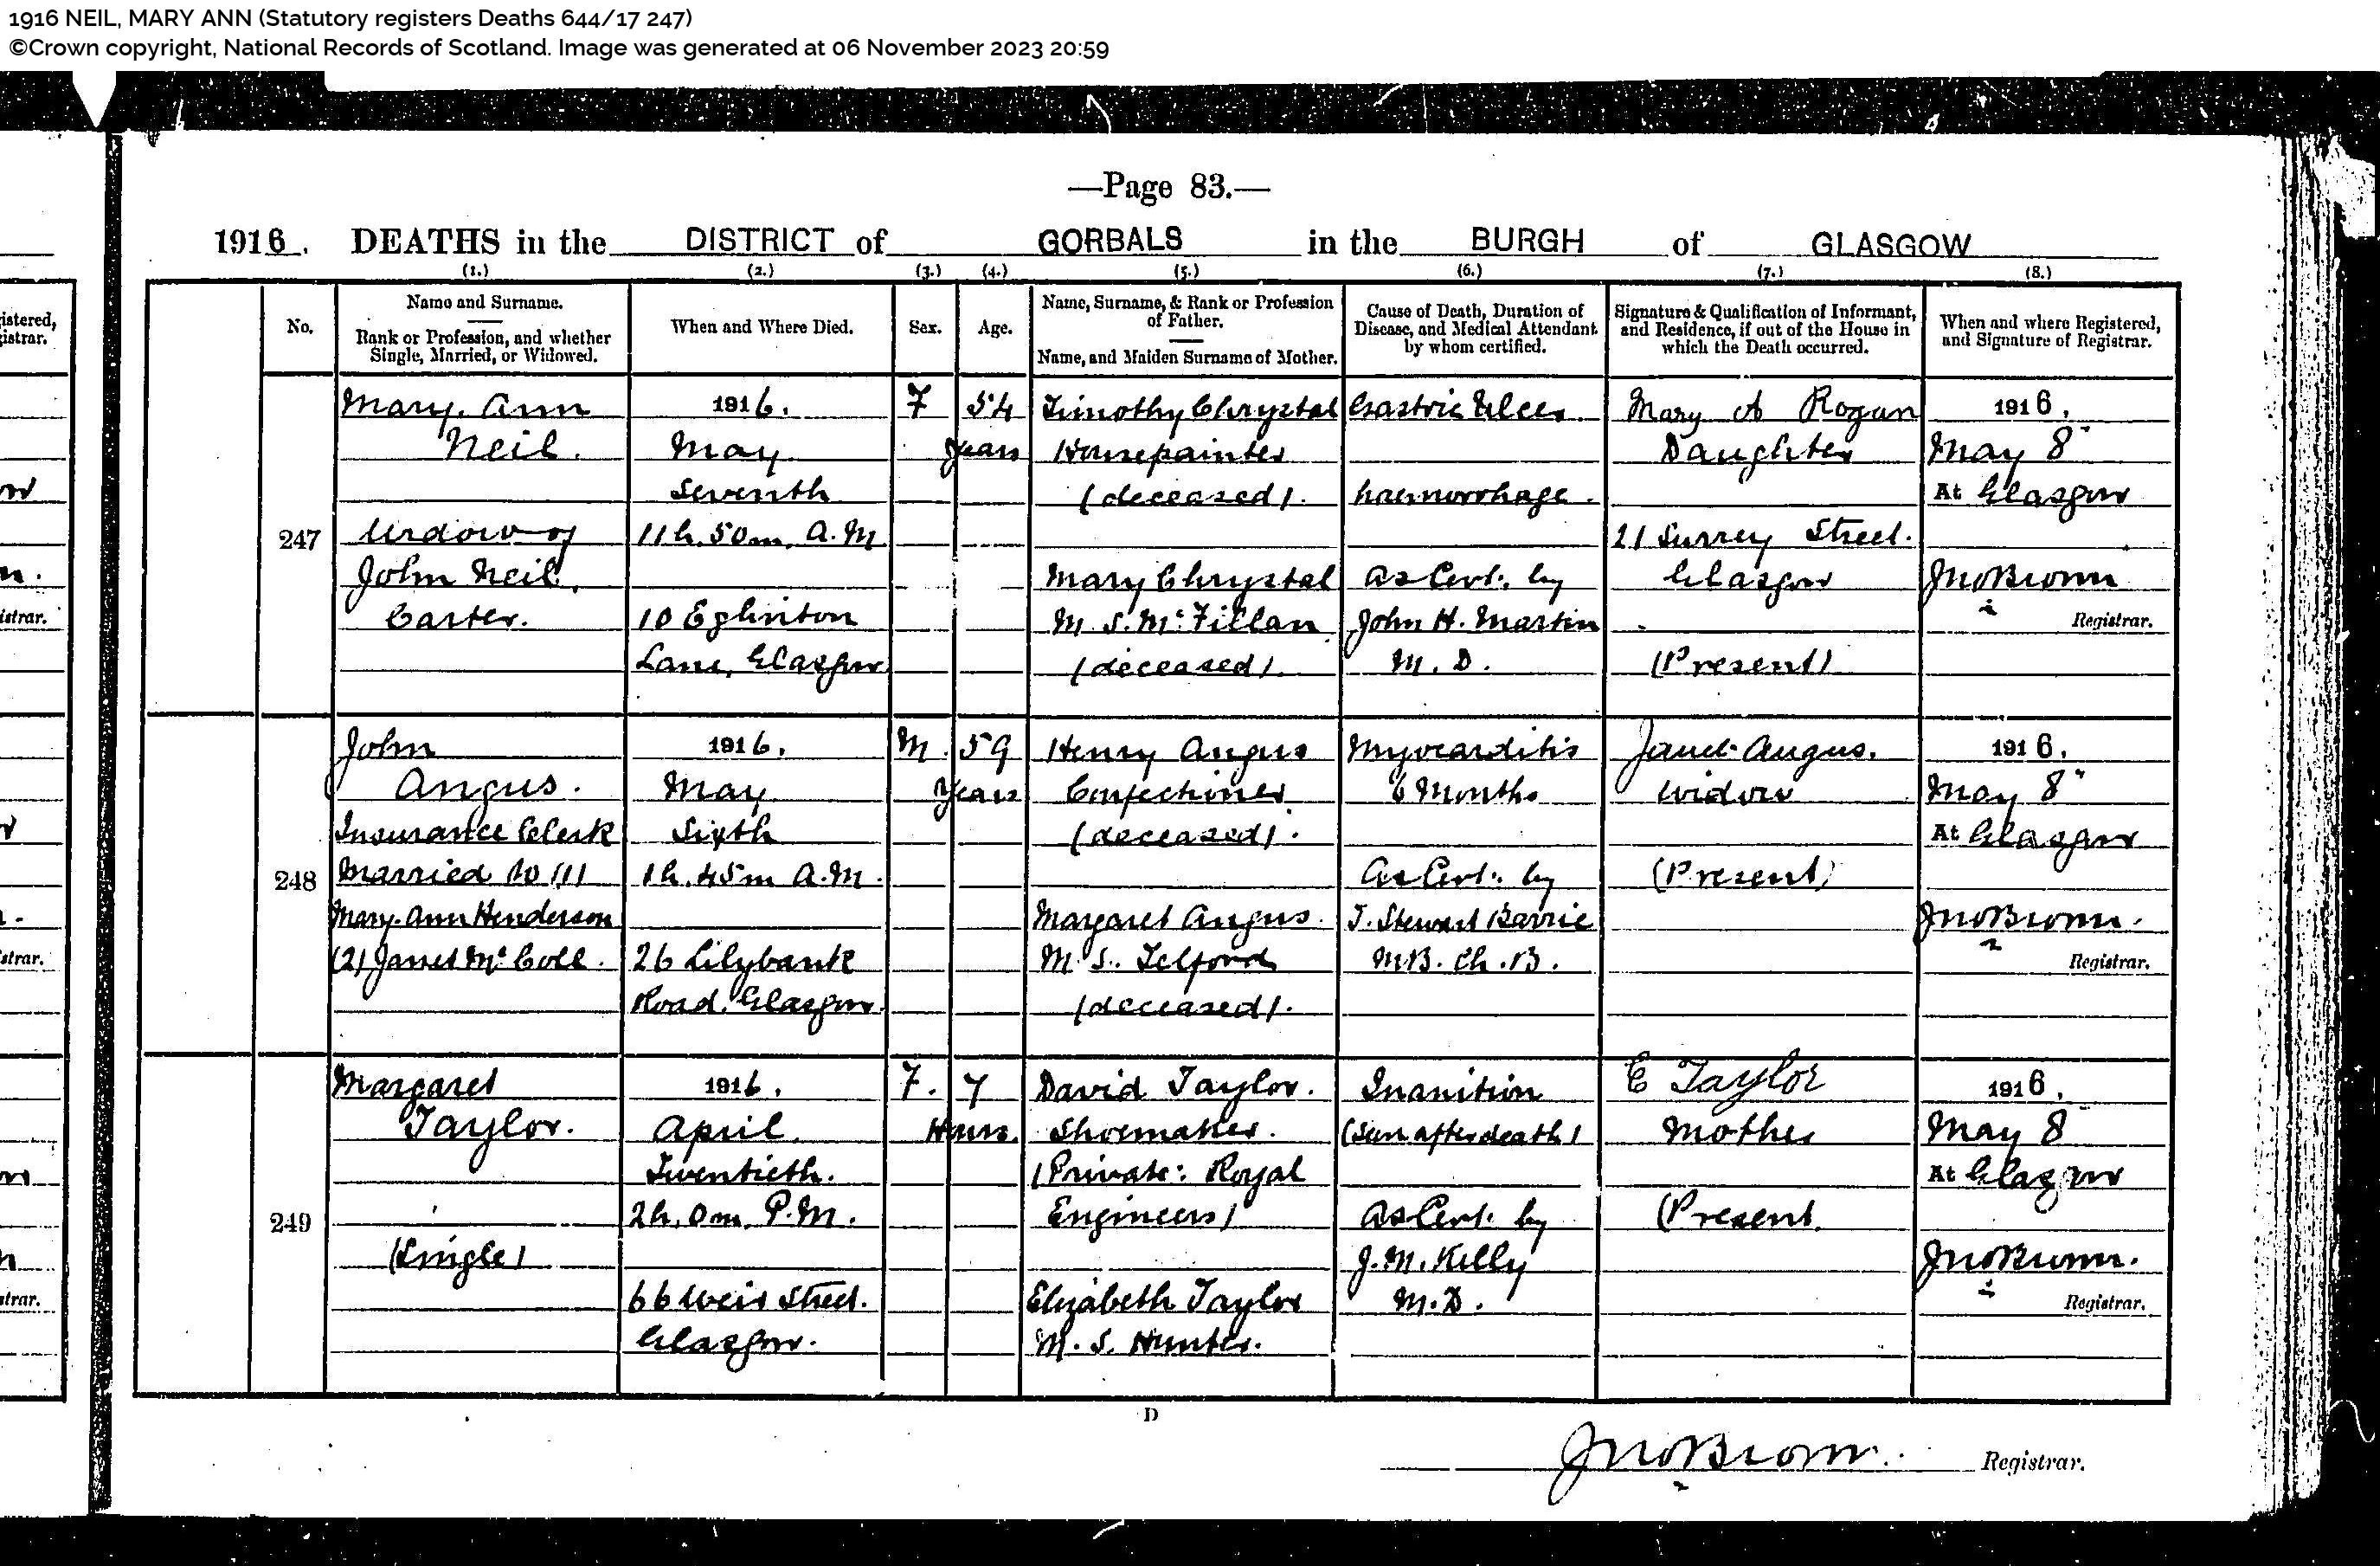 1916 NEIL, MARY ANN (Statutory registers Deaths 644/17 247)
©Crown copyright, National Records of Scotland. Image was generated at 06 November 2023 20:59
—Page 83.—
1916. DEATHS in the DISTRICT of GORBALS in the BURGH of GLASGOW
(1.) (2.) (3.) (4.) (5.) (6.) (7.) (8.)
No.
Name and Surname.
Rank or Profession, and whether
Single, Married, or Widowed.
When and Where Died.
Sex.
Age.
Name, Surname, & Rank or Profession
of Father.
Name, and Maiden Surname of Mother.
Cause of Death, Duration of
Disease, and Medical Attendant
by whom certified.
Signature & Qualification of Informant,
and Residence, if out of the House in
which the Death occurred.
When and where Registered,
and Signature of Registrar.
247
Mary Ann
Neil.
Widow of
John Neil,
Carter.
1916.
May
Seventh
11h. 50m. A.M
10 Eglinton
Lane, Glasgow
F
54
years
Timothy Chrystal
Housepainter
(deceased).
Mary Chrystal
M. S. McFillan
(deceased).
Gastric Ulcer.
haemorrhage.
As Cert. by
John H. Martin
M. D.
Mary A Rogan
Daughter
21 Surrey Street.
Glasgow
(Present)
1916.
May 8"
At Glasgow
Jno Brown
Registrar.
248
John
Angus.
Insurance Clerk
Married to (1)
Mary Ann Henderson
(2) Janet McColl.
1916.
May
Sixth
1h. 45m A.M.
26 Lilybank
Road. Glasgow.
M.
59
Years
Henry Angus
Confectioner
(deceased).
Margaret Angus.
M. S. Telford
(deceased).
Myocarditis
6 Months
As Cert. by
J. Stewart Barrie
M.B. Ch. B.
Janet Angus.
Widow
(Present)
1916.
May 8"
At Glasgow
Jno Brown.
Registrar.
249
Margaret
Taylor.
(Single)
1916.
April
Twentieth.
2h. 0m. P.M.
66 Weir Street.
Glasgow.
F.
7
Hours.
David Taylor.
Shoemaker.
(Private: Royal
Engineers)
Elizabeth Taylor
M. S. Hunter.
Inanition
(Seen after death)
As Cert. by
J. M. Kelly
M.D.
E Taylor
Mother
(Present.
1916.
May 8"
At Glasgow
Jno Brown.
Registrar.
D
Jno Brown. Registrar.